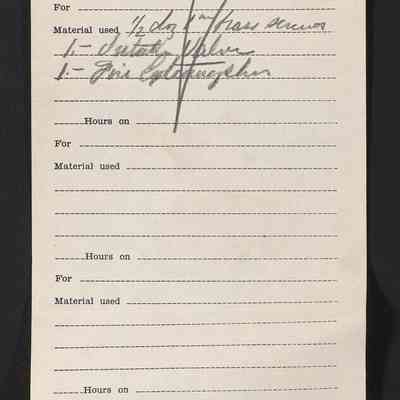 For
Material used 1/2 doz 1" brass screws
1.- Valve
1.- Fire Extinguisher
Hours on
For
Material used
Hours on
For
Material used
Hours on